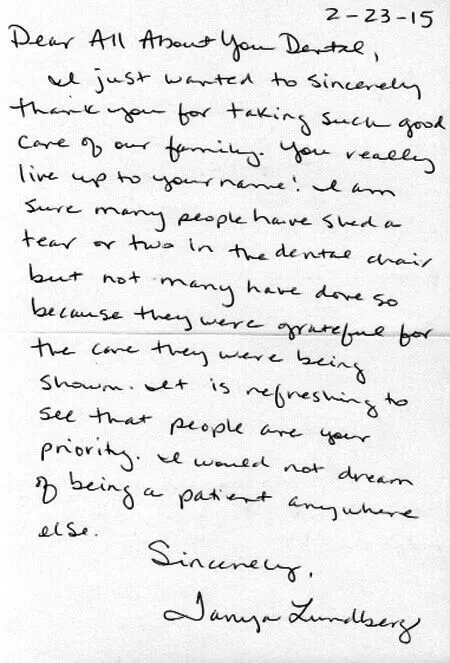 2-23-15
Dear All About You Dental,
I just wanted to sincerely
thank you for taking such good
care of our family. You really
live up to your name! I am
sure many people have shed a
tear or two in the dental chair
but not many have done so
because they were grateful for
the care they were being
shown. It is refreshing to
see that people are your
priority. I would not dream
of being a patient anywhere
else.
Sincerely,
Tanya Lundberg